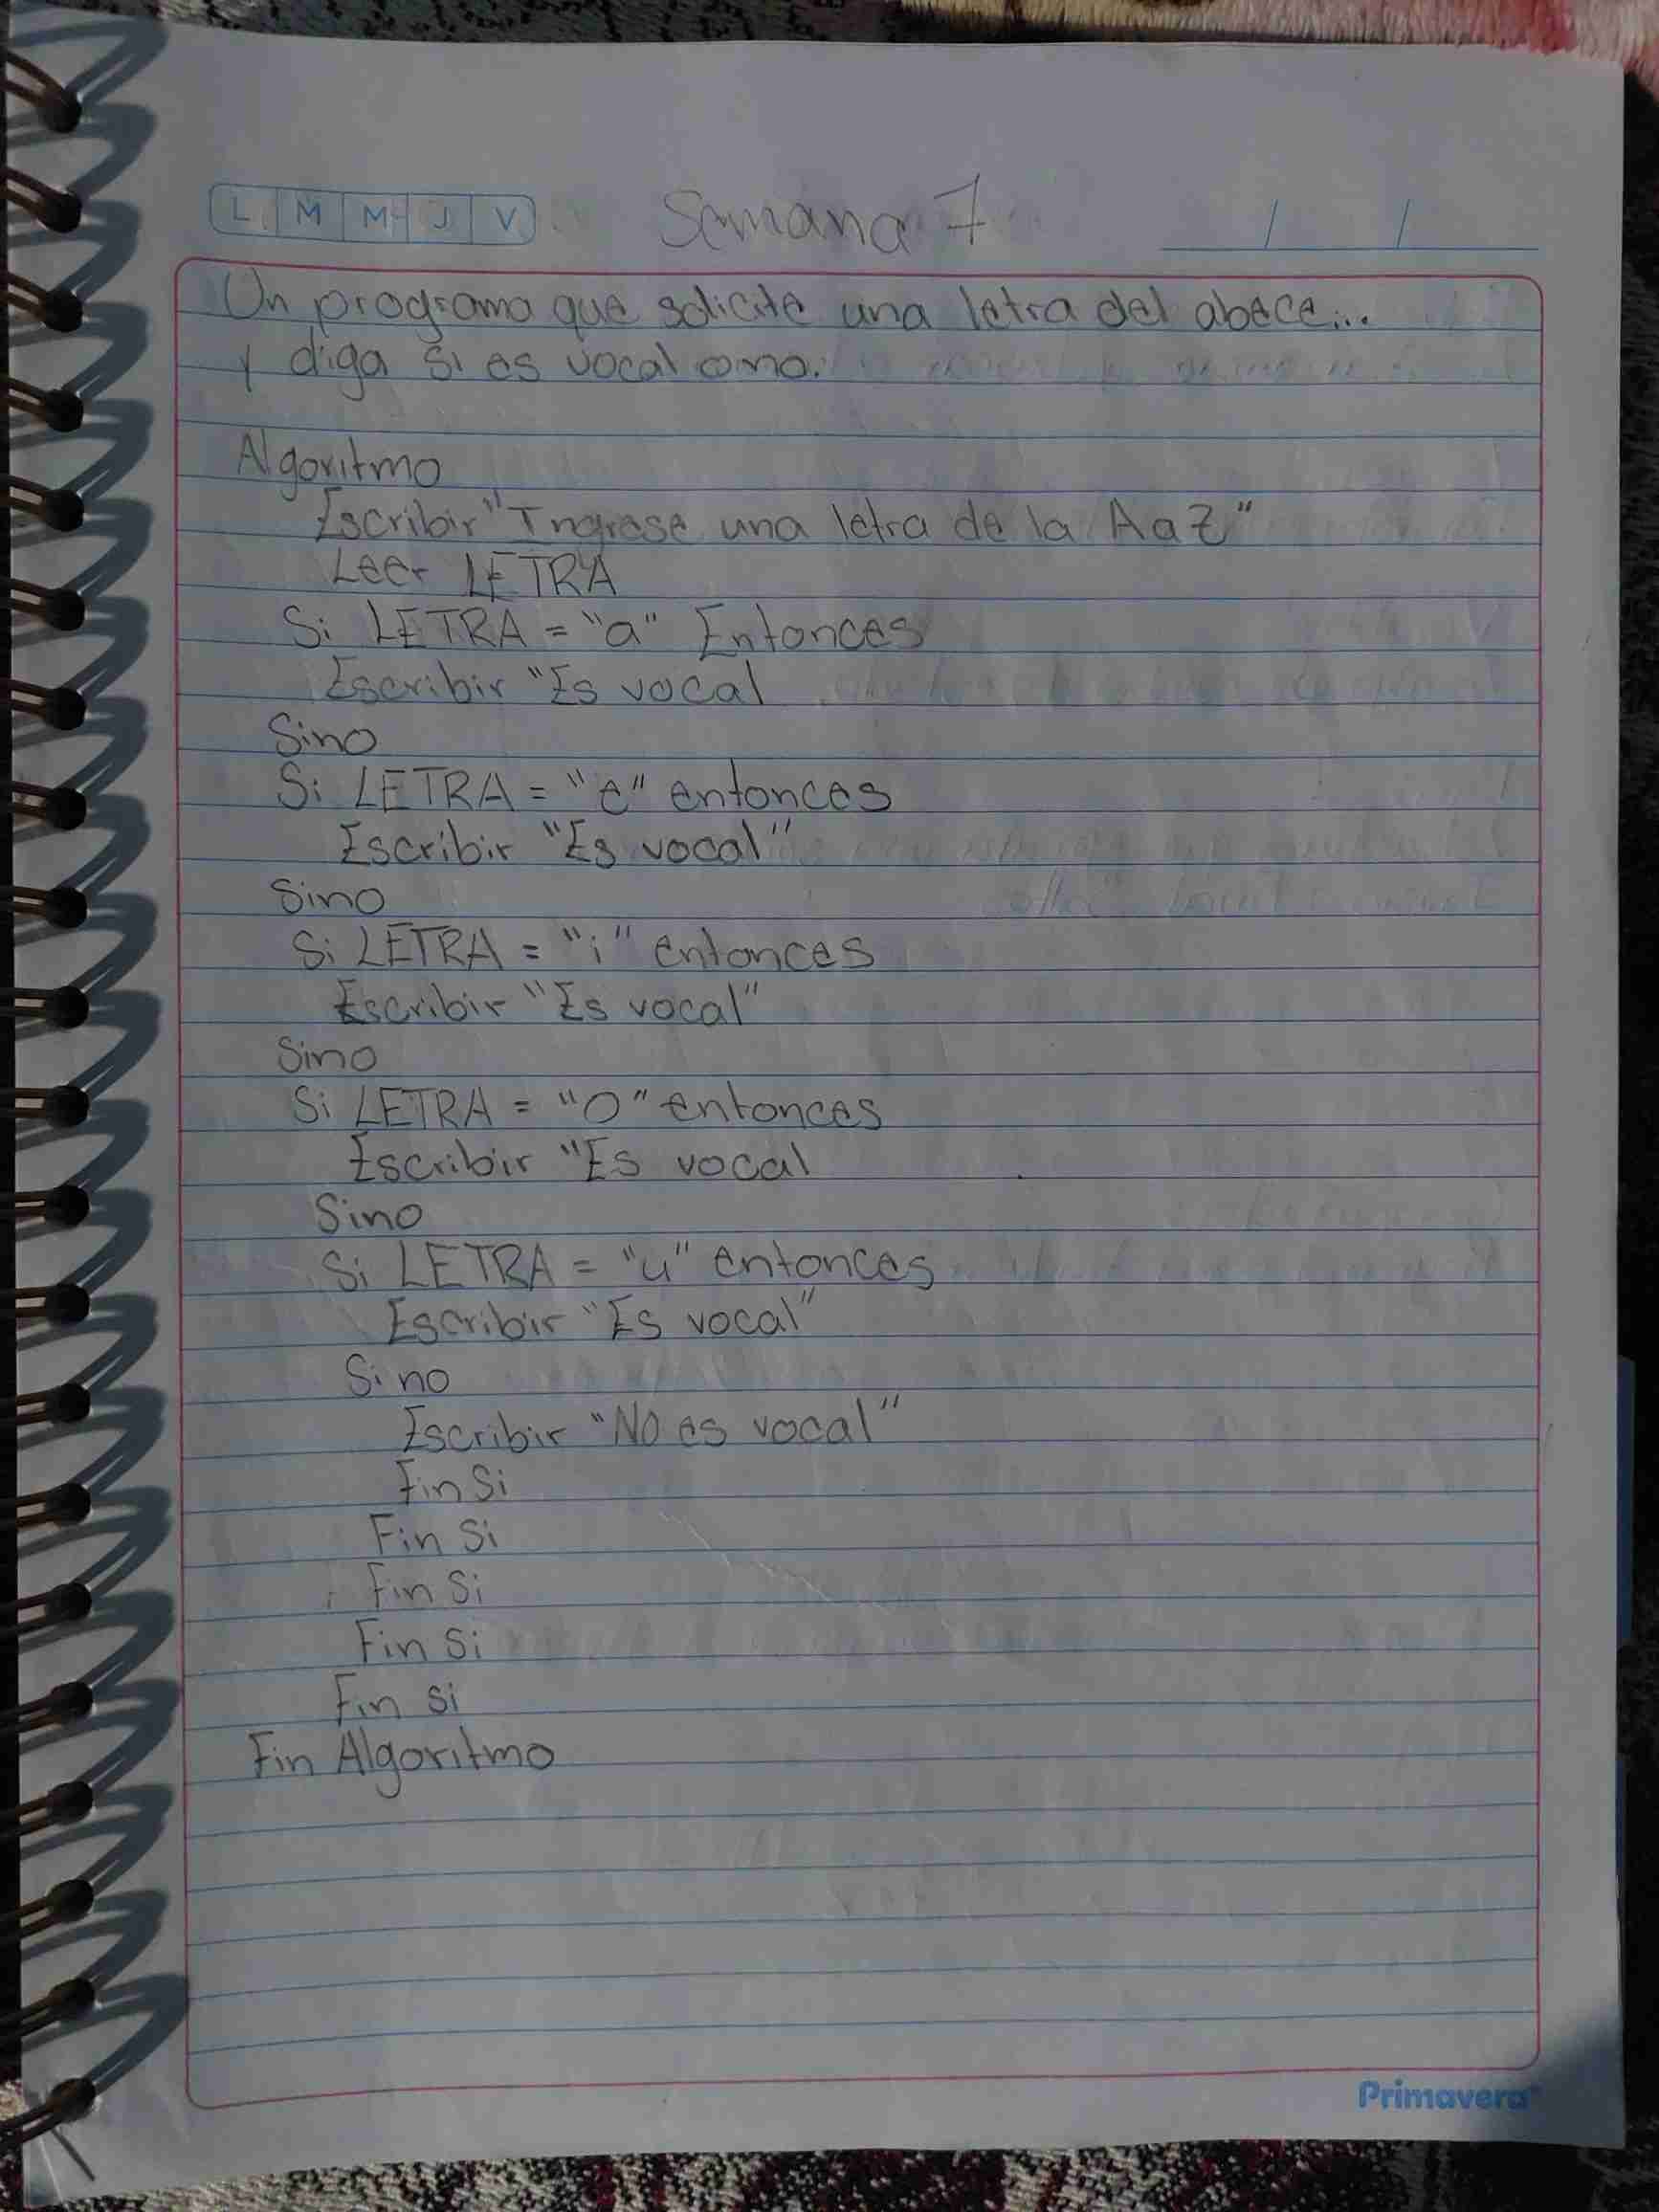 L M M J V
Semana 7
Un programa que solicite una letra del abece...
y diga si es vocal o no.
Algoritmo
Escribir "Ingrese una letra de la A a Z"
Leer LETRA
Si LETRA = "a" Entonces
Escribir "Es vocal
Sino
Si LETRA = "e" entonces
Escribir "Es vocal"
Sino
Si LETRA = "i" entonces
Escribir "Es vocal"
Sino
Si LETRA = "O" entonces
Escribir "Es vocal
Sino
Si LETRA = "u" entonces
Escribir "Es vocal"
Si no
Escribir "No es vocal"
Fin Si
Fin Si
Fin Si
Fin Si
Fin si
Fin Algoritmo
Primavera